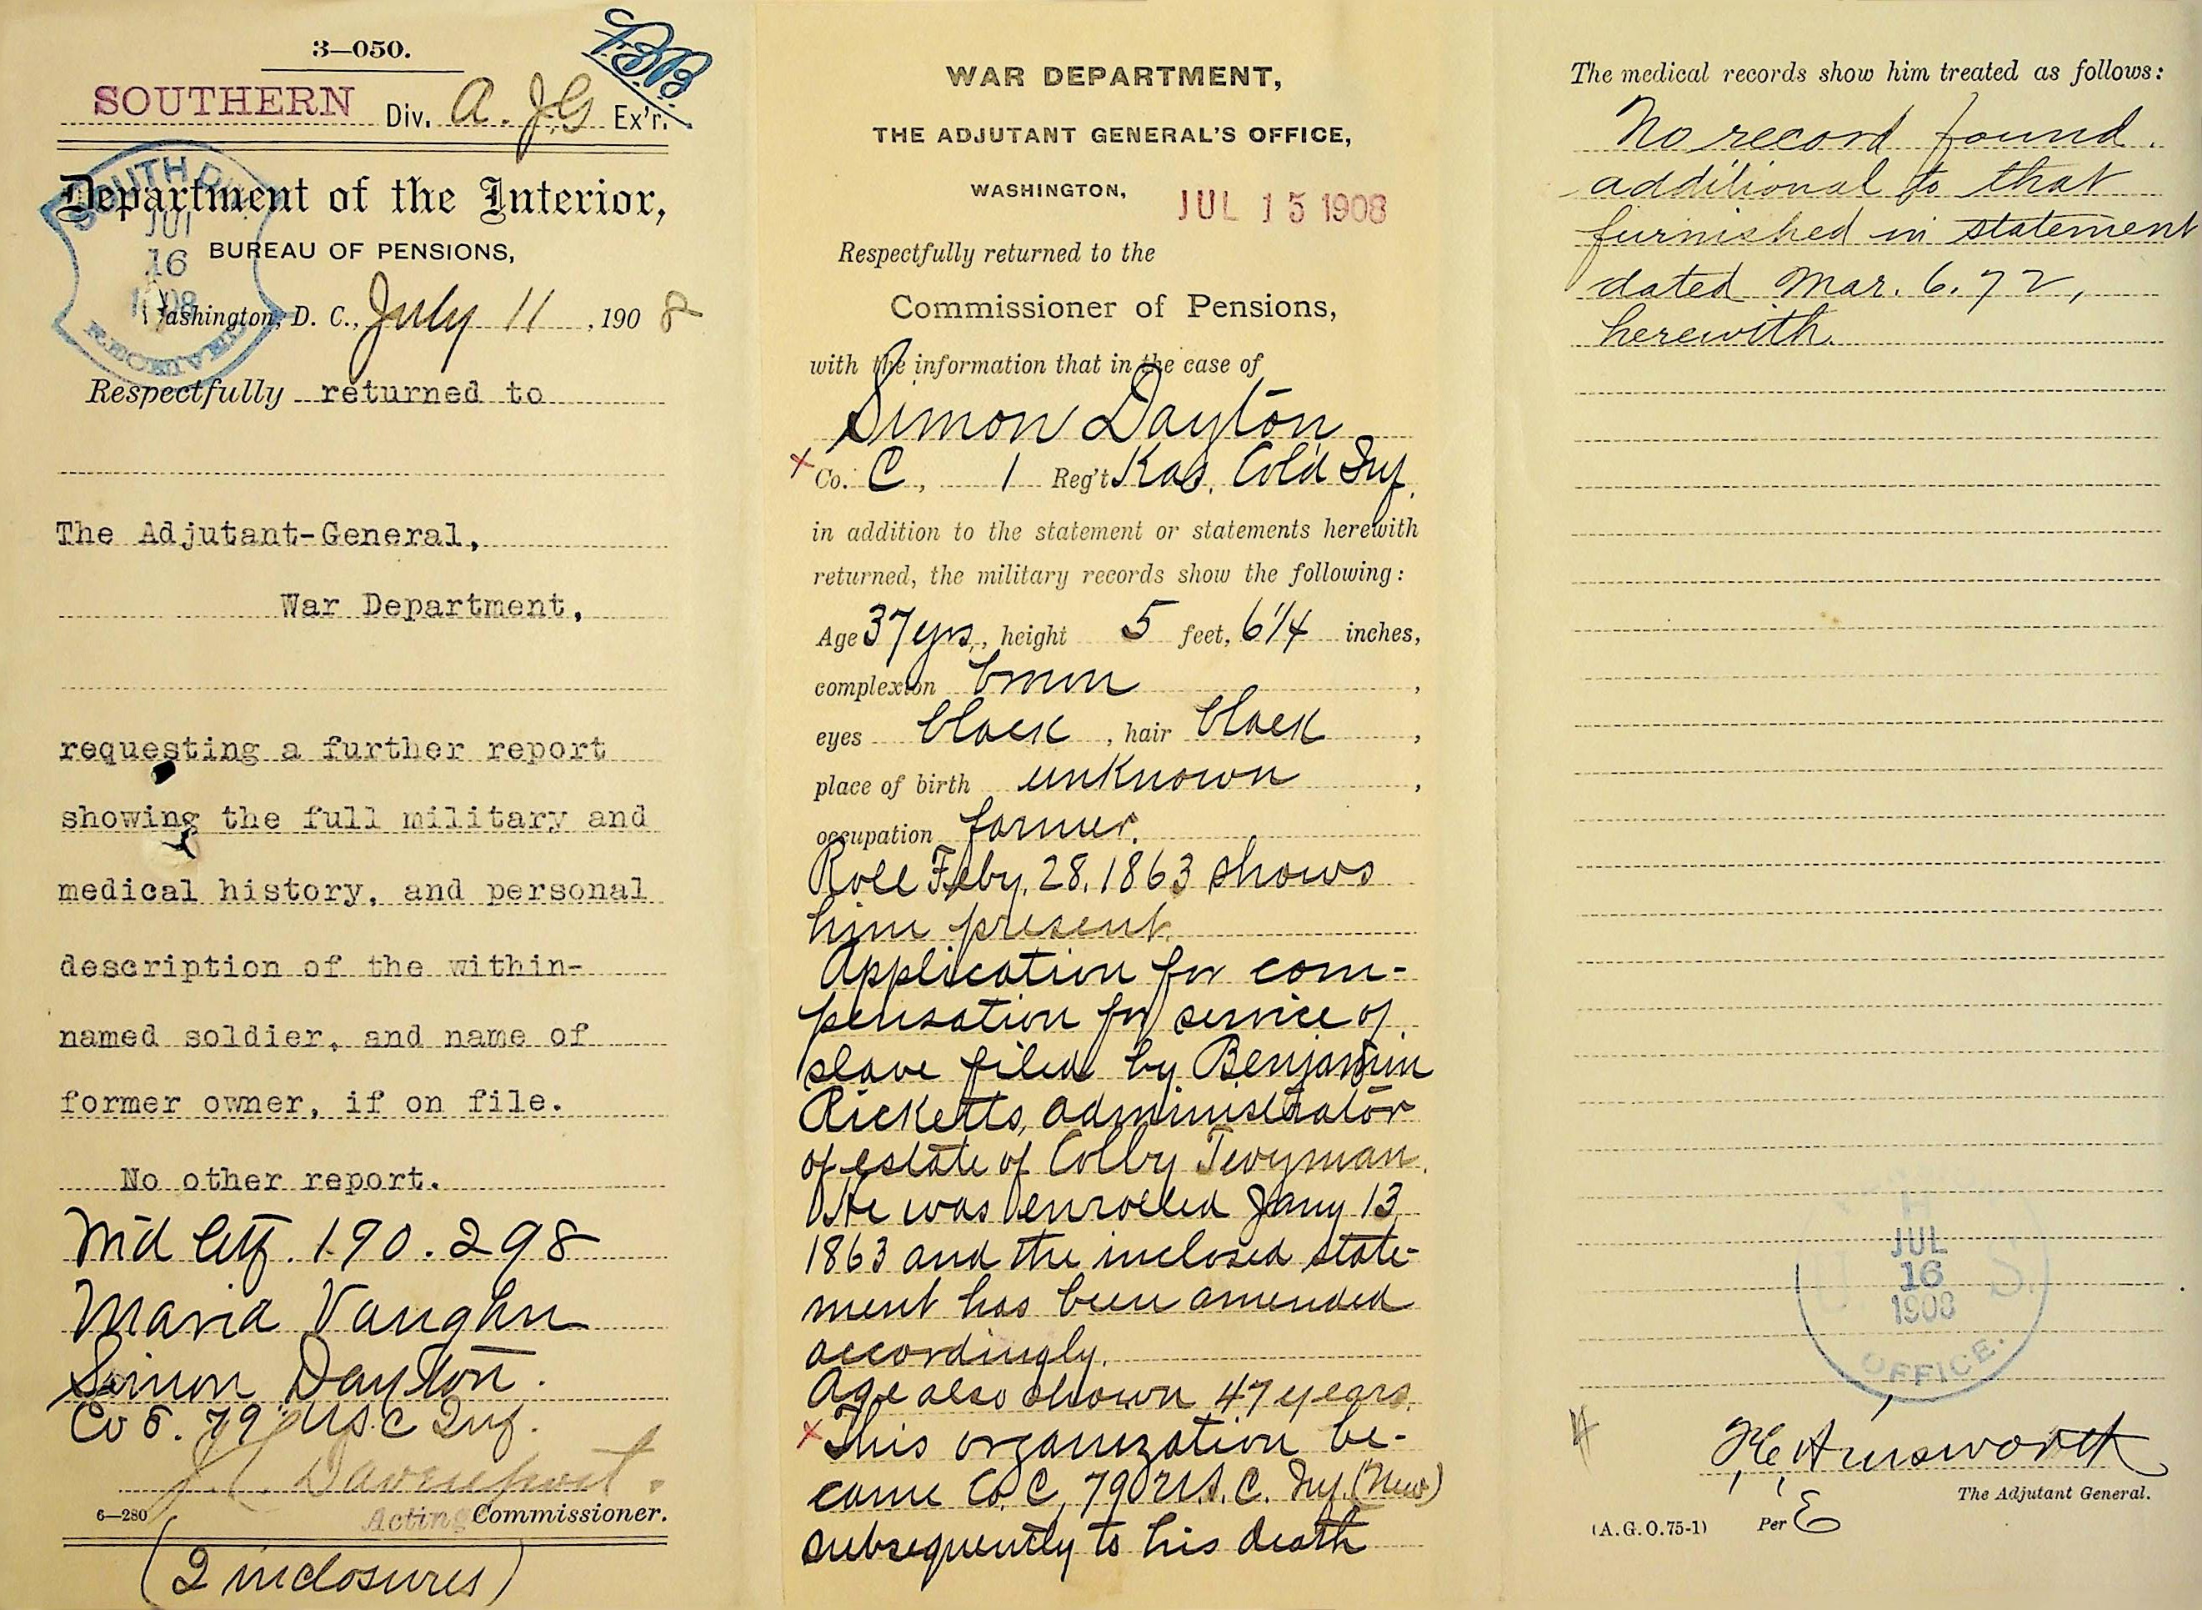 3—050.
SOUTHERN Div. A. J.G Ex'r.
SOUTH DIV.
JUL
16
1908
Department of the Interior,
BUREAU OF PENSIONS,
Washington, D. C., July 11, 1908
Respectfully returned to
The Adjutant-General,
War Department,
requesting a further report
showing the full military and
medical history, and personal
description of the within-
named soldier, and name of
former owner, if on file.
No other report.
Wid Ctf. 190.298
Maria Vaughn
Simon Dayton.
Co 79 U.S.C Inf.
J. L. Davenport.
6—280 Acting Commissioner.
(2 inclosures)
WAR DEPARTMENT,
THE ADJUTANT GENERAL'S OFFICE,
WASHINGTON, JUL 15 1908
Respectfully returned to the
Commissioner of Pensions,
with the information that in the case of
Simon Dayton
x Co. C, 1 Reg't Kas. Col'd Inf.
in addition to the statement or statements herewith
returned, the military records show the following:
Age 37 yrs, height 5 feet, 6 1/4 inches,
complexion brown,
eyes black, hair black,
place of birth unknown,
occupation farmer.
Roll Feby. 28. 1863 shows
him present.
Application for com-
pensation for service of
slave filed by Benjamin
Ricketts, administrator
of estate of Colby Twyman.
He was enrolled Jany 13
1863 and the inclosed state-
ment has been amended
accordingly.
Age also shown 47 years.
x This organization be-
came Co. C, 79 U.S.C. Inf. (New)
subsequently to his death
The medical records show him treated as follows:
No record found.
additional to that
furnished in statement
dated Mar. 6. 72,
herewith.
JUL
16
1908
OFFICE.
F.C. Ainsworth
The Adjutant General.
(A.G.O. 75-1) Per E